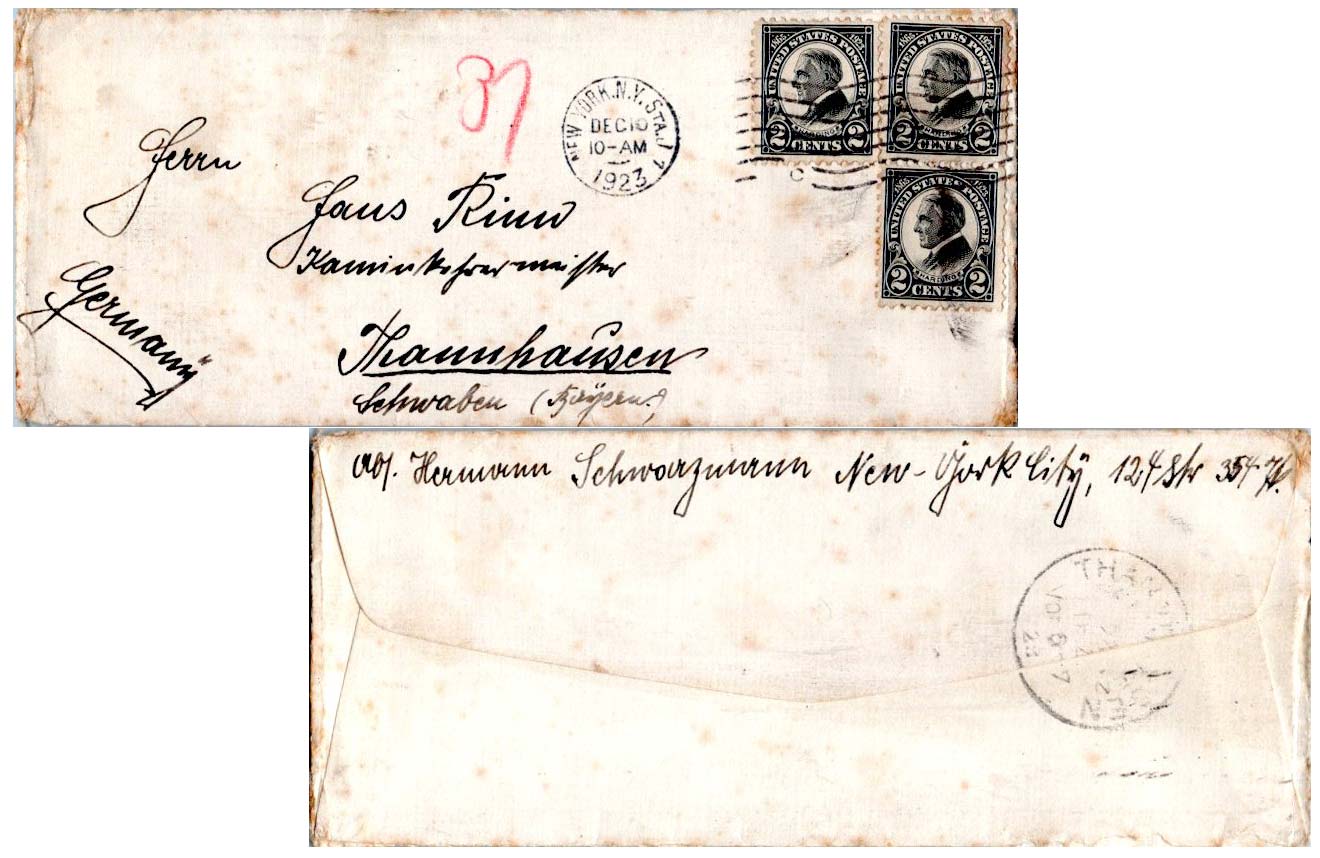 UNITED STATES POSTAGE
1865 1923
HARDING
2 CENTS 2
UNITED STATES POSTAGE
1865 1923
HARDING
2 CENTS 2
37
NEW YORK, N.Y. STA. J
DEC 10
10-AM
1923
7
C
UNITED STATES POSTAGE
1865 1923
HARDING
2 CENTS 2
Herrn
Hans
Kaminkehrermeister
Germany
Thannhausen
Schwaben (Bayern.)
Abs. Hermann Schwarzmann New-York City, 124 Str 354 W.
THANNHAUSEN
Vor 6-7